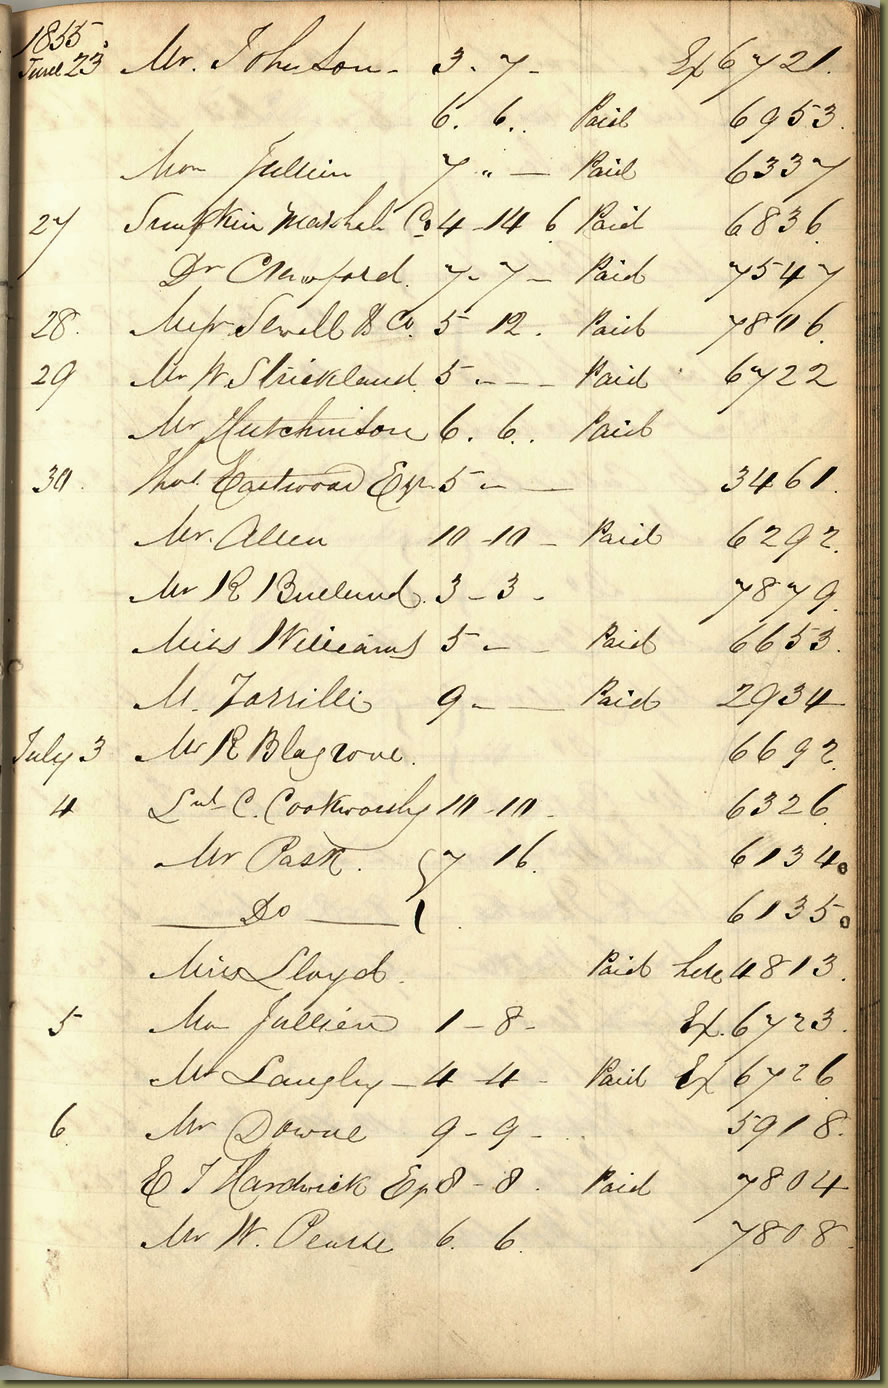 1855
June 23 Mr. Johnson - 3. 7 - Ex 6721.
6. 6.. Paid 6953.
Mon Jullien 7 " — Paid 6337
27 Simpkin Marshal Co 4 -14 6 Paid 6836
Dr Crawford. 7- 7 - Paid 7547
28. Messr Sewell & Co. 5 12. Paid 7806.
29 Mr W. Strickland 5 - - - Paid 6722
Mr Hutchinson 6. 6.. Paid
30 Thos. Eastwood Esqr 5 - — 3461.
Mr. Allen 10 -10 - Paid 6292.
Mr R 3 - 3 - 7879.
Miss Williams 5 - - Paid 6653.
M. Zorrilli 9 - — Paid 2934
July 3 Mr R Blagrove. 6692.
4 C. Cookworthy 10 -10 - 6326.
Mr Pask. 7 16. 6134.
Do 6135.
Miss Lloyd. Paid here 4813.
5 Mon Jullien 1 - 8 - Ex. 6723.
Mr Langley — 4 - 4 - Paid Ex 6726
6 Mr Downe 9 - 9 - 5918.
E T Hardwick Esqr 8 - 8. Paid 7804
Mr W. Pearse 6. 6. 7808.